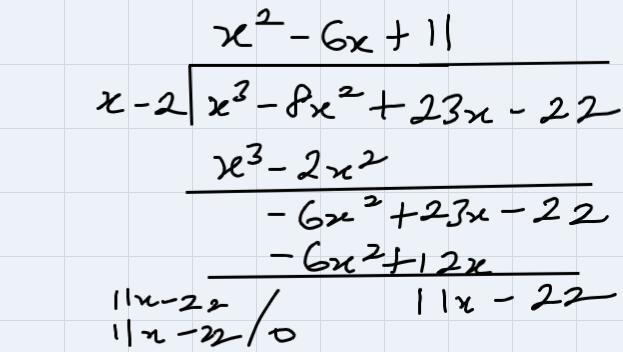 x² - 6x + 11
x - 2 | x³ - 8x² + 23x - 22
x³ - 2x²
- 6x² + 23x - 22
- 6x² + 12x
11x - 22
11x - 22
11x - 22 / 0